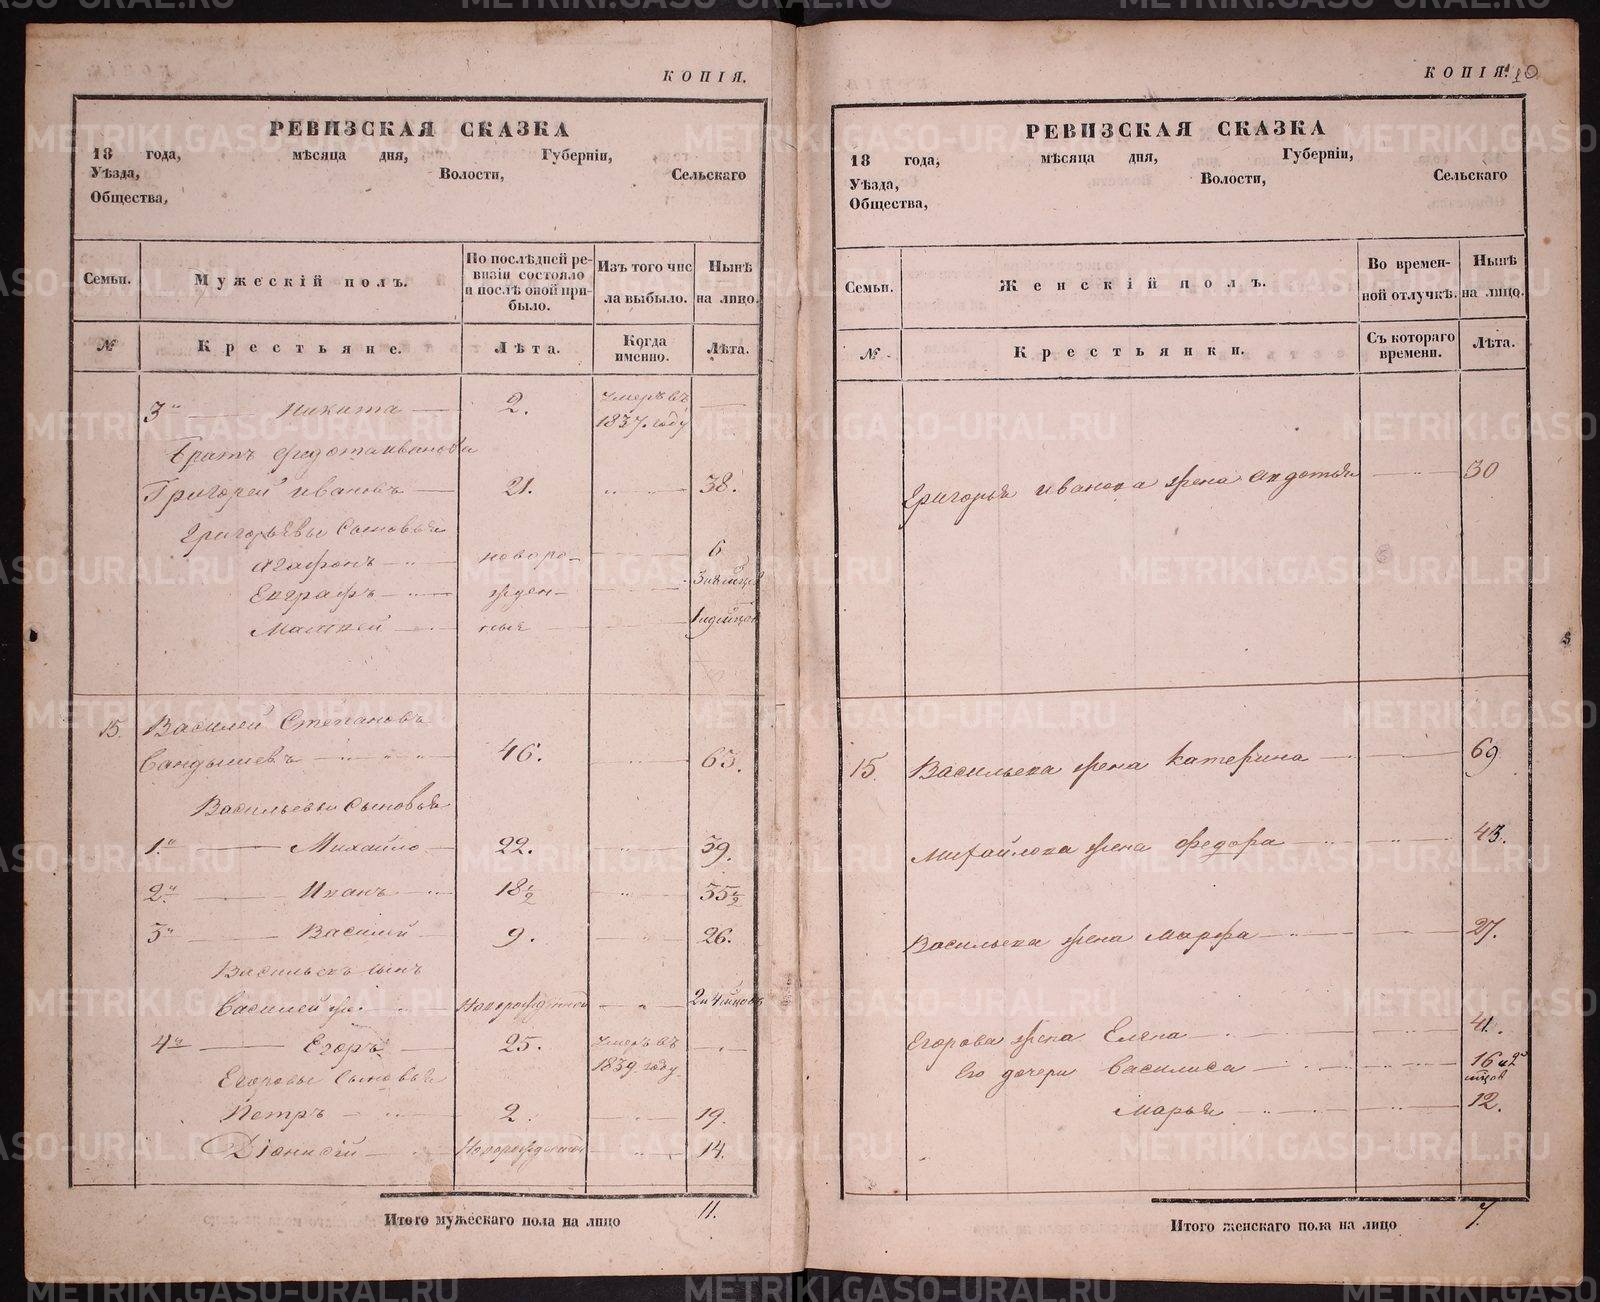 КОПІЯ.
РЕВИЗСКАЯ СКАЗКА
18 года, мѣсяца дня, Губерніи,
Уѣзда, Волости, Сельскаго
Общества,
Семьи. Мужескій полъ. По послѣдней ревизіи состояло и послѣ оной прибыло. Изъ того числа выбыло. Нынѣ на лицо.
№ Крестьяне. Лѣта. Когда именно. Лѣта.
3й Никита 2. Умеръ въ 1837. году
Братъ Федота Ивановъ
Григорей Ивановъ 21. 38.
Григорьевы Сыновья
Агафонъ новоро- 6
Евграфъ жден-
Матвей ные
15. Василей Степановъ
Сандышевъ 46. 63.
Васильевы Сыновья
1й Михайло 22. 39.
2й Иванъ 18 1/2 35 1/2
3й Василей 9. 26.
Васильевъ сынъ
Василей же Новорожденный 2 и 4 мцовъ
4й Егоръ 25. Умеръ въ 1839 году.
Егоровы Сыновья
Петръ 2. 19.
Діонисій Новорожденный 14.
Итого мужескаго пола на лицо 11.
КОПІЯ. 10
РЕВИЗСКАЯ СКАЗКА
18 года, мѣсяца дня, Губерніи,
Уѣзда, Волости, Сельскаго
Общества,
Семьи. Женскій полъ. Во временной отлучкѣ. Нынѣ на лицо.
№ Крестьянки. Съ котораго времени. Лѣта.
Григорья Иванова жена Авдотья 30
15. Васильева жена Катерина 69
Михайлова жена Федора 43.
Васильева жена Марфа 27.
Егорова жена Елена 41.
Его дочери Василиса 16 и 2 мцов
Марья 12.
Итого женскаго пола на лицо 7.
METRIKI.GASO-URAL.RU